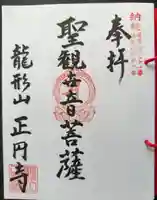 奉拝
聖観世音菩薩
龍形山 正円寺